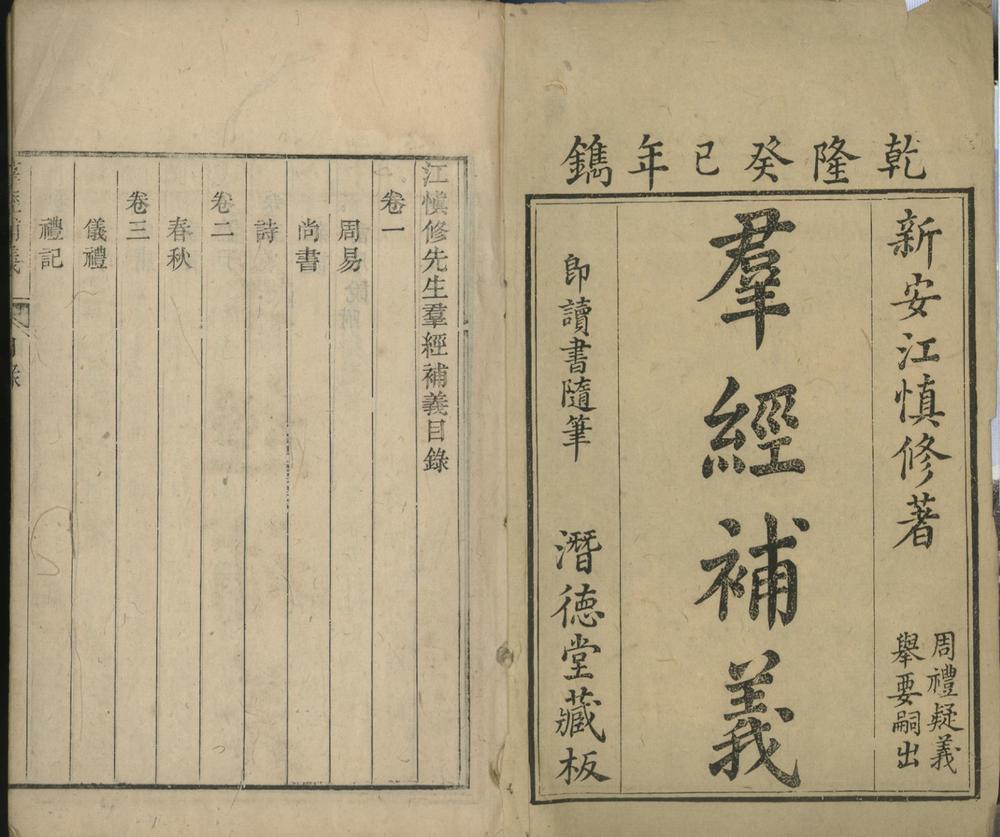 乾隆癸巳年鐫
新安江慎修著
周禮疑義
舉要嗣出
羣經補義
卽讀書隨筆
潛德堂藏板
江慎修先生羣經補義目錄
卷一
周易
尚書
詩
卷二
春秋
卷三
儀禮
禮記
羣經補義
目錄